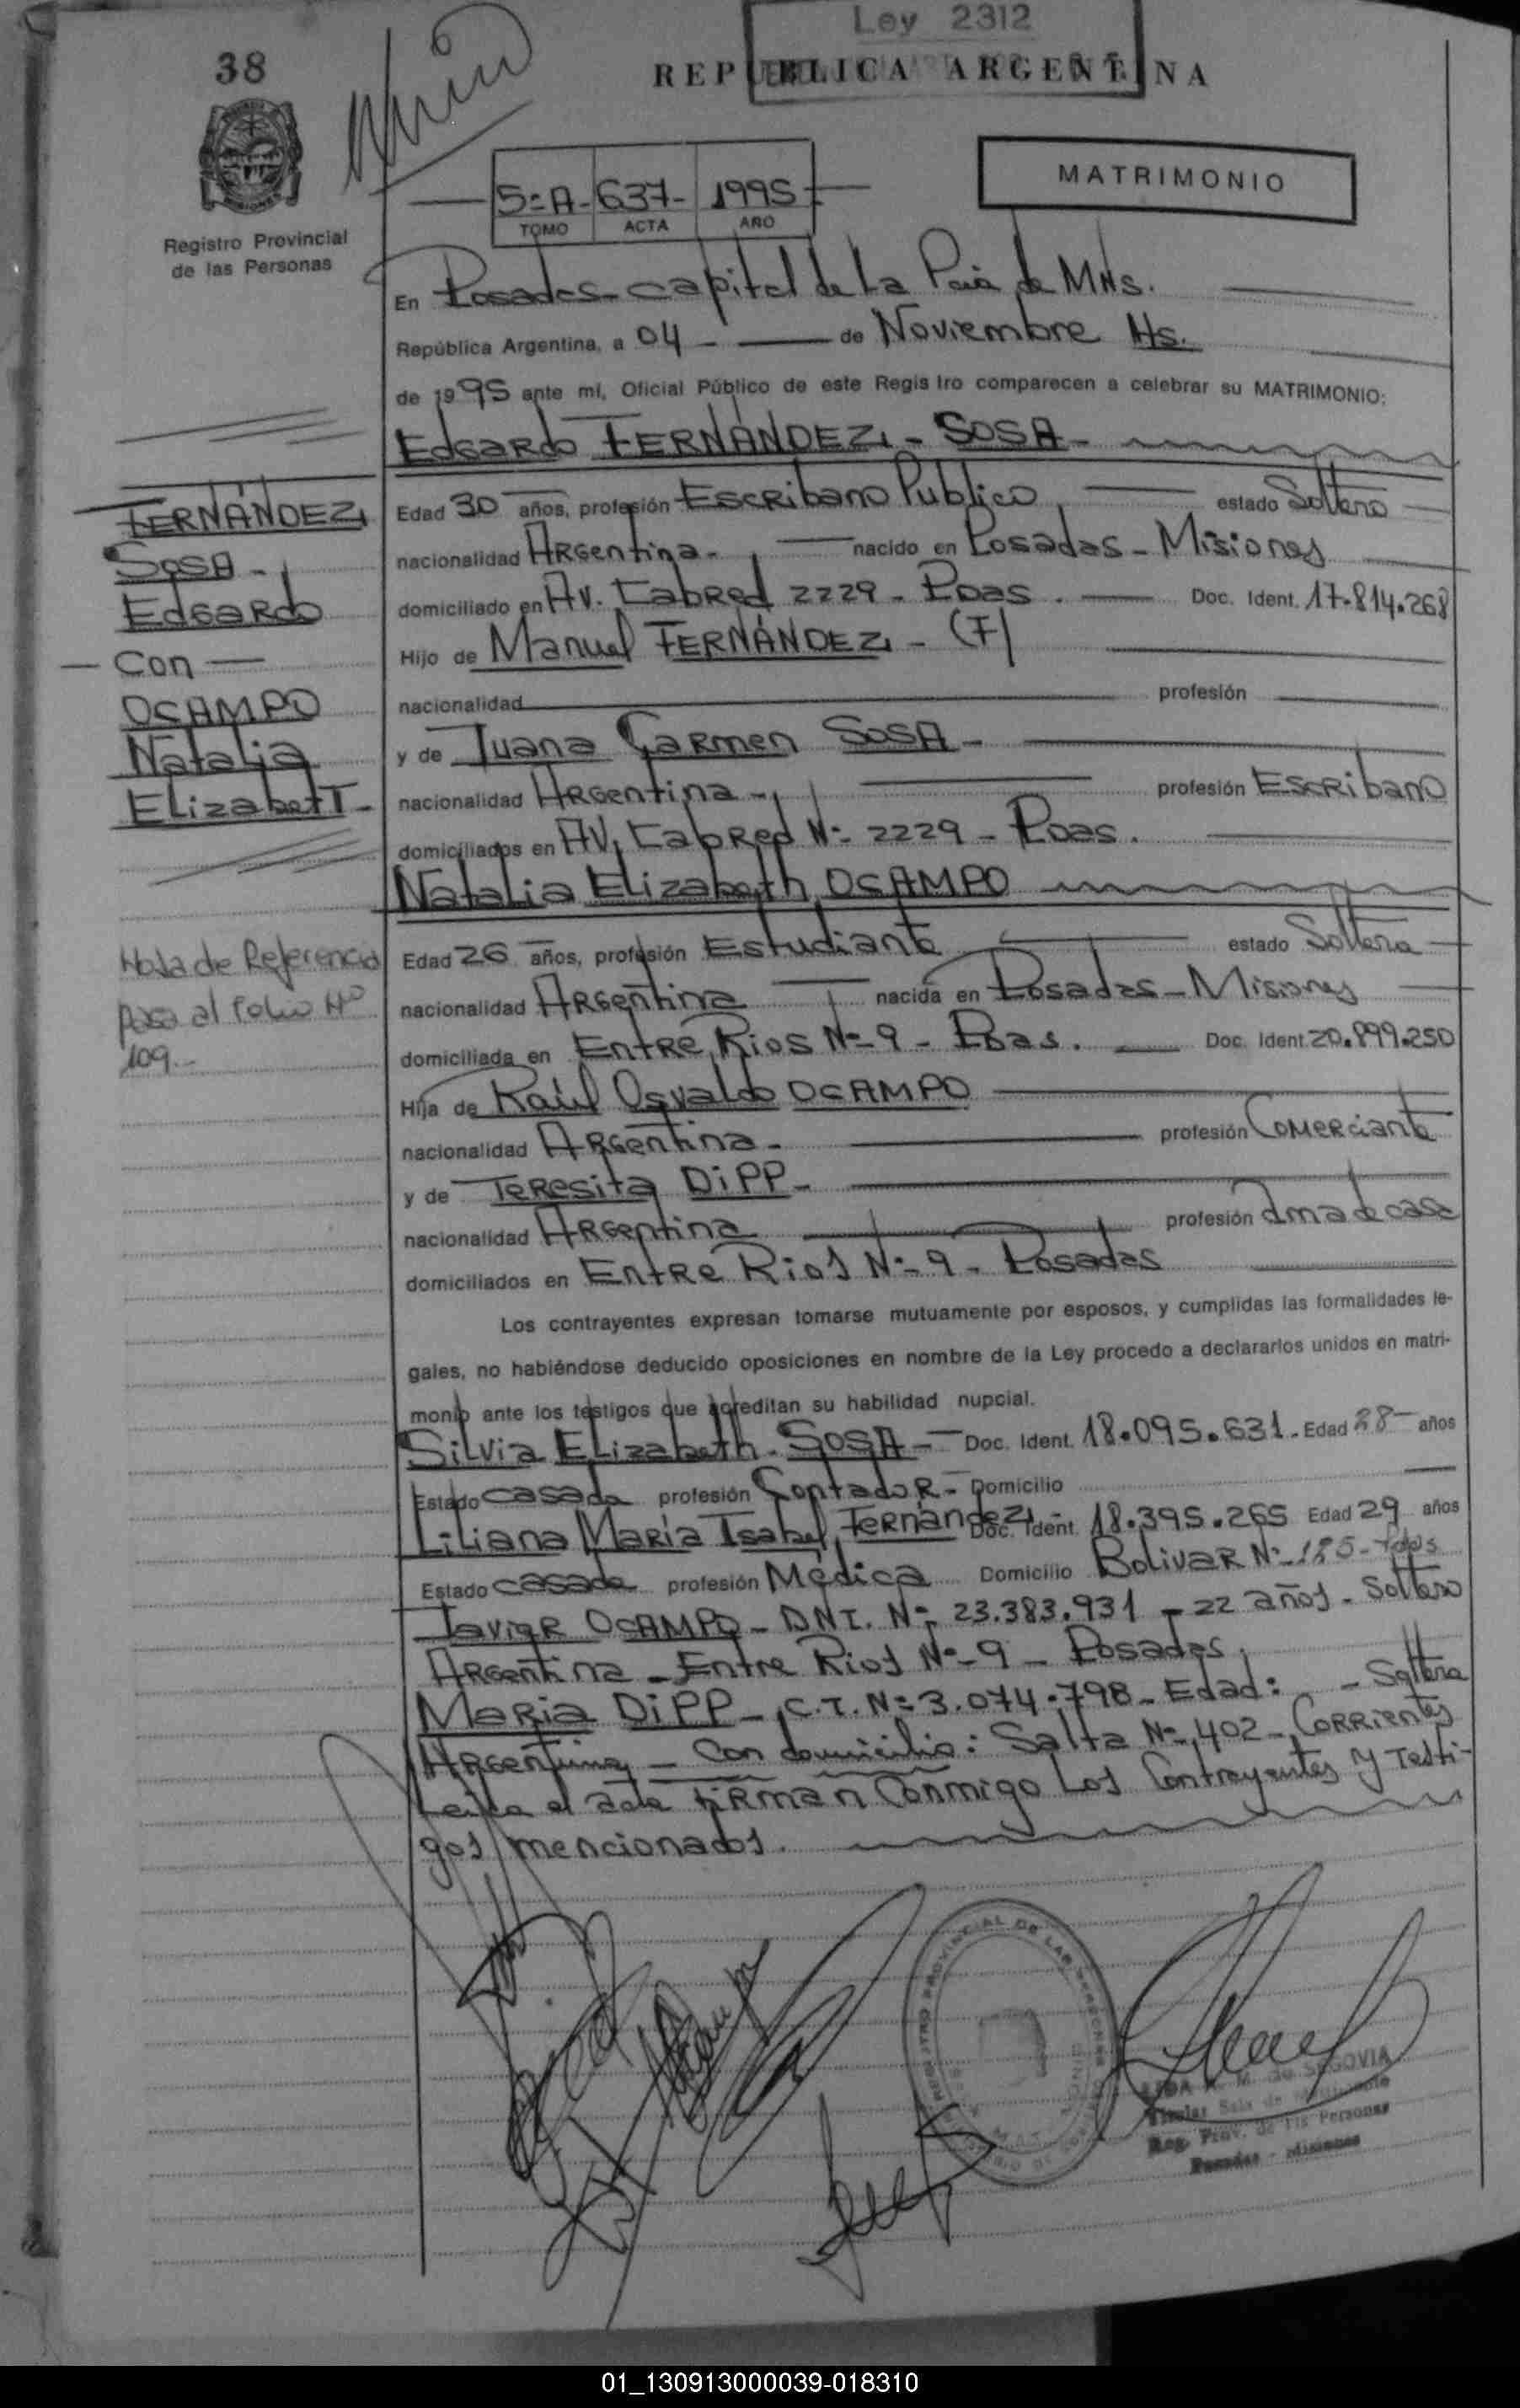 Ley 2312
38
REPUBLICA ARGENTINA
MATRIMONIO
5=A- 637- 1995
TOMO ACTA AÑO
Registro Provincial
de las Personas
En Posadas - Capital de La Pcia de MNS.
República Argentina, a 04 - de Noviembre Hs.
de 1995 ante mí, Oficial Público de este Registro comparecen a celebrar su MATRIMONIO:
Edgardo FERNÁNDEZ - SOSA -
FERNÁNDEZ
SOSA -
Edgardo
- Con -
OCAMPO
Natalia
Elizabet -
Edad 30 años, profesión Escribano Publico estado Soltero
nacionalidad Argentina - nacido en Posadas - Misiones
domiciliado en Av. Cabred 2229 - Pdas. Doc. Ident. 17.814.268
Hijo de Manuel FERNÁNDEZ - (F)
nacionalidad profesión
y de Juana Carmen SOSA -
nacionalidad Argentina - profesión Escribano
domiciliados en AV. Cabred N=- 2229 - Pdas.
Natalia Elizabeth OCAMPO
Nota de Referencia
pasa al folio Nº
109.-
Edad 26 años, profesión Estudiante estado Soltera
nacionalidad Argentina nacida en Posadas - Misiones
domiciliada en Entre Rios N=- 9 - Pdas. Doc. Ident. 20.899.250
Hija de Raúl Osvaldo OCAMPO
nacionalidad Argentina - profesión Comerciante
y de Teresita DiPP -
nacionalidad Argentina profesión Ama de casa
domiciliados en Entre Rios N=- 9 - Posadas
Los contrayentes expresan tomarse mutuamente por esposos, y cumplidas las formalidades le-
gales, no habiéndose deducido oposiciones en nombre de la Ley procedo a declararlos unidos en matri-
monio ante los testigos que acreditan su habilidad nupcial.
Silvia Elizabeth - SOSA - Doc. Ident. 18.095.631 - Edad 28 - años
Estado casada profesión Contador - Domicilio
Liliana María Isabel Fernández Doc. Ident. 18.395.265 Edad 29 años
Estado casada profesión Médica Domicilio Bolivar N=- 185 - Pdas
Javier OCAMPO - DNI. N=- 23.383.931 - 22 años - Soltero
Argentina - Entre Rios N=- 9 - Posadas.
Maria DiPP - C.I. N= 3.074.798 - Edad: - Soltera
Argentina - Con domicilio: Salta N=- 402 - Corrientes
Leída el acta firman Conmigo Los Contrayentes y Testi-
gos mencionados.
REGISTRO PROVINCIAL DE LAS PERSONAS
M. DE SEGOVIA
Titular Sala de
Reg. Prov. de las Personas
Posadas - Misiones
01_130913000039-018310